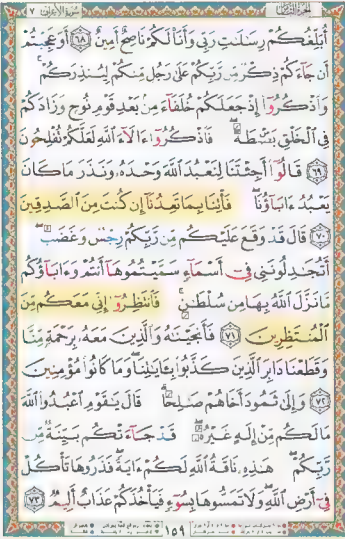 سُورَةُ الأَعْرَافِ ٧
أُبَلِّغُكُمْ رِسَٰلَٰتِ رَبِّى وَأَنَا۠ لَكُمْ نَاصِحٌ أَمِينٌ ﴿٦٨﴾ أَوَعَجِبْتُمْ
أَن جَآءَكُمْ ذِكْرٌ مِّن رَّبِّكُمْ عَلَىٰ رَجُلٍ مِّنكُمْ لِيُنذِرَكُمْ ۚ
وَٱذْكُرُوٓا۟ إِذْ جَعَلَكُمْ خُلَفَآءَ مِنۢ بَعْدِ قَوْمِ نُوحٍ وَزَادَكُمْ
فِى ٱلْخَلْقِ بَصْۜطَةً ۖ فَٱذْكُرُوٓا۟ ءَالَآءَ ٱللَّهِ لَعَلَّكُمْ تُفْلِحُونَ
﴿٦٩﴾ قَالُوٓا۟ أَجِئْتَنَا لِنَعْبُدَ ٱللَّهَ وَحْدَهُۥ وَنَذَرَ مَا كَانَ
يَعْبُدُ ءَابَآؤُنَا ۖ فَأْتِنَا بِمَا تَعِدُنَآ إِن كُنتَ مِنَ ٱلصَّٰدِقِينَ
﴿٧٠﴾ قَالَ قَدْ وَقَعَ عَلَيْكُم مِّن رَّبِّكُمْ رِجْسٌ وَغَضَبٌ ۖ
أَتُجَٰدِلُونَنِى فِىٓ أَسْمَآءٍ سَمَّيْتُمُوهَآ أَنتُمْ وَءَابَآؤُكُم
مَّا نَزَّلَ ٱللَّهُ بِهَا مِن سُلْطَٰنٍ ۚ فَٱنتَظِرُوٓا۟ إِنِّى مَعَكُم مِّنَ
ٱلْمُنتَظِرِينَ ﴿٧١﴾ فَأَنجَيْنَٰهُ وَٱلَّذِينَ مَعَهُۥ بِرَحْمَةٍ مِّنَّا
وَقَطَعْنَا دَابِرَ ٱلَّذِينَ كَذَّبُوا۟ بِـَٔايَٰتِنَا ۖ وَمَا كَانُوا۟ مُؤْمِنِينَ
﴿٧٢﴾ وَإِلَىٰ ثَمُودَ أَخَاهُمْ صَٰلِحًا ۗ قَالَ يَٰقَوْمِ ٱعْبُدُوا۟ ٱللَّهَ
مَا لَكُم مِّنْ إِلَٰهٍ غَيْرُهُۥ ۖ قَدْ جَآءَتْكُم بَيِّنَةٌ مِّن
رَّبِّكُمْ ۖ هَٰذِهِۦ نَاقَةُ ٱللَّهِ لَكُمْ ءَايَةً ۖ فَذَرُوهَا تَأْكُلْ
فِىٓ أَرْضِ ٱللَّهِ ۖ وَلَا تَمَسُّوهَا بِسُوٓءٍ فَيَأْخُذَكُمْ عَذَابٌ أَلِيمٌ ﴿٧٣﴾
١٥٩